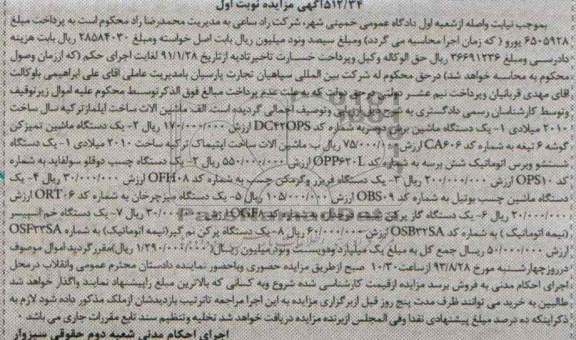 ۵۱۲/۳۴آگهی مزایده نوبت اول
بموجب نیابت واصله ازشعبه اول دادگاه عمومی خمینی شهر، شرکت راد ساعی به مدیریت محمدرضا راد محکوم است به پرداخت مبلغ
۶۵۰۵۹۲۸ یورو ( که زمان اجرا محاسبه می گردد) ومبلغ سیصد ونود میلیون ریال بابت اصل خواسته ومبلغ ۲۸۵۸۴۰۳۰ ریال بابت هزینه
دادرسی ومبلغ ۳۶۶۹۱۲۳۶ ریال حق الوکاله وکیل وپرداخت خسارت تاخیرتادیه ازتاریخ ۹۱/۱/۲۸ لغایت اجرای حکم (که اززمان وصول
محکوم به محاسبه خواهد شد) درحق محکوم له شرکت بین المللی سپاهیان تجارت پارسیان بامدیریت عاملی اقای علی ابراهیمی باوکالت
اقای مهدی قربانیان وپرداخت نیم عشر دولتی درحق دولت که به علت عدم پرداخت مبالغ فوق الذکرتوسط محکوم علیه اموال زیرتوقیف
وتوسط کارشناس رسمی دادگستری به وتوصیف اجمالی گردیده است. الف ماشین الات ساخت ایلمازترکیه سال ساخت
۲۰۱۰ میلادی ۱- یک دستگاه ماشین به شماره کد DC۴۲۲OPS ارزش ۱۷۰/۰۰۰/۰۰۰ ریال ۲- یک دستگاه ماشین تمیزکن
گوشه ۶ تیغه به شماره کد CA۶۰۶ ارزش ۷۵/۰۰۰/۰۰۰ ریال ب- ماشین الات ساخت اپتیماک ترکیه ساخت ۲۰۱۰ میلادی ۱- یک دستگاه
سنتشو ویرس اتوماتیک شش پرسه به شماره کد OPP۶۲۰L ارزش ۵۵۰/۰۰۰/۰۰۰ ریال ۲- یک دستگاه چسب دوقلو سولفاید به شماره
کد OPS۱۰ ارزش ۲۰۰/۰۰۰/۰۰۰ ریال ۳- یک دستگاه فریزر وگرمکن چسب به شماره کد OFH۰۸ ارزش ۳۰/۰۰۰/۰۰۰ ریال ۴- یک
دستگاه ماشین چسب بوتیل به شماره کد OBS۰۹ ارزش ۱۰۵/۰۰۰/۰۰۰ ریال ۵- یک دستگاه میزچرخان به شماره کد ORT۰۶ ارزش
۲۰/۰۰۰/۰۰۰ ریال ۶- یک دستگاه گاز پرکن به شماره کد OGF۸ ارزش ۳۰/۰۰۰/۰۰۰ ریال ۷- یک دستگاه خم اسپیسر
(نیمه اتوماتیک ) به شماره کد OSB۳۲SA ارزش ۶۰/۰۰۰/۰۰۰ ریال ۸- یک دستگاه پرکن نم گیر(نیمه اتوماتیک) به شماره OSF۳۲SA
ارزش ۵۰/۰۰۰/۰۰۰ ریال جمع کل به مبلغ یک میلیارد ودویست ونود میلیون ریال(۱/۲۹۰/۰۰۰/۰۰۰ ریال)مقررگردید اموال موصوف
درروزچهارشنبه مورخ ۹۳/۸/۲۸ ازساعت۱۰/۳۰ صبح ازطریق مزایده حضوری وباحضور نماینده دادستان محترم عمومی وانقلاب درمحل
اجرای احکام مدنی به فروش برسد مزایده ازقیمت کارشناسی شده شروع وبه کسانی که بالاترین مبلغ راپیشنهاد نمایند واگذار خواهد شد
طالبین به خرید می توانند ظرف مدت پنج روز قبل ازبرگزاری مزایده به این اجرا مراجعه تاترتیب بازدیدشان ازملک مذکور داده شود لازم به
ذکراینکه ده درصد مبلغ پیشنهادی نقدا وفی المجلس ازبرنده مزایده دریافت خواهد شد تخلیه وتنظیم سند تابع مقررات جاری می باشد .
اجرای احکام مدنی شعبه دوم حقوقی سبزوار